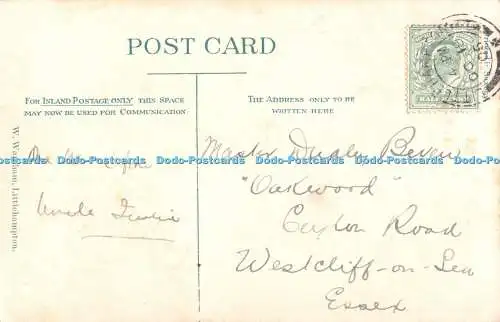 POST CARD
FOR INLAND POSTAGE ONLY THIS SPACE
MAY NOW BE USED FOR COMMUNICATION.
THE ADDRESS ONLY TO BE
WRITTEN HERE
HALF
W. , Littlehampton.
Uncle
Master Bevan
"Oakwood"
Ceylon Road
Westcliff-on-Sea
Essex
Dodo-Postcards Dodo-Postcards Dodo-Postcards Dodo-Postcards Dodo-Postcards Dodo-Postcards